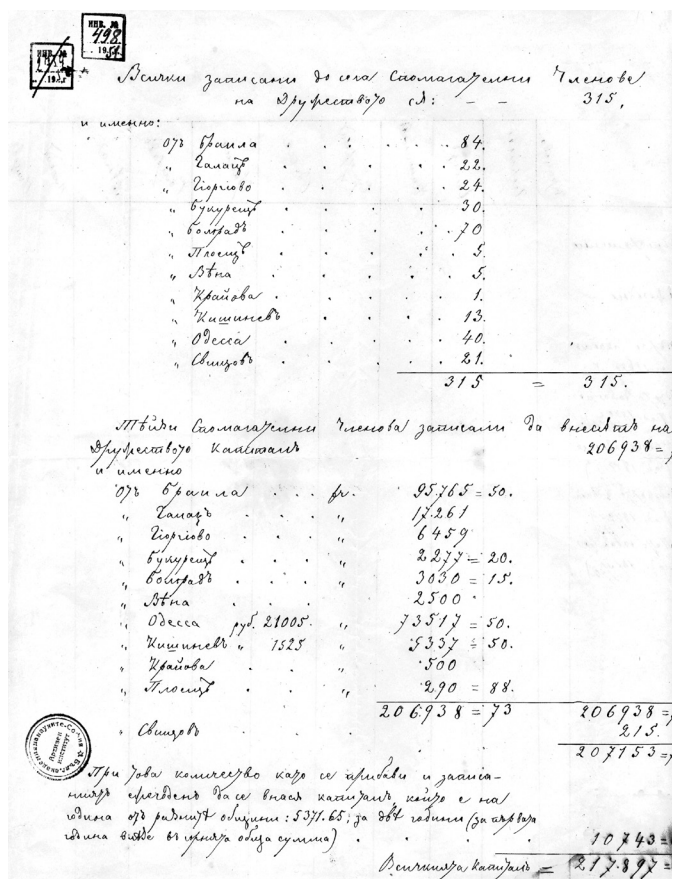 ИНВ. №
498
195
ИНВ. №
Всички записани до сега Спомагателни Членове
на Дружеството сѫ: – – 315.
и именно:
отъ Браила . . . . . 84.
„ Галацъ . . . . 22.
„ Гіоргіово . . . . 24.
„ Букурещъ . . . . 30.
„ Болградъ . . . . 70
„ Плоещъ . . . . 5.
„ Вѣна . . . . 5.
„ Крайова . . . . 1.
„ Кишиневъ . . . . 13.
„ Одесса . . . . 40.
„ Свищовъ . . . . 21.
315 = 315.
Тѣйзи Спомагателни Членова записали да внесѫтъ на
Дружеството Капиталъ 206938=
и именно
отъ Браила . . . fr. 95.765 = 50.
„ Галацъ . . . „ 17.261
„ Гіоргіово . . . „ 6459
„ Букурещъ . . . „ 2277 = 20.
„ Болградъ . . . „ 3030 = 15.
„ Вѣна . . . 2500
„ Одесса руб. 21005. „ 73517 = 50.
„ Кишиневъ „ 1525 „ 5337 = 50.
„ Крайова „ 500
„ Плоещъ . . „ 290 = 88.
206.938 = 73 206938=
„ Свищовъ . . . 215.
207153=
При това количество като се прибави и записа-
да се внася капиталъ, който е на
година отъ общини: 5371.65; за двѣ години (за първа
година въ обща сумма) . . . 10743=
Всичкиятъ Капиталъ = 217.897=